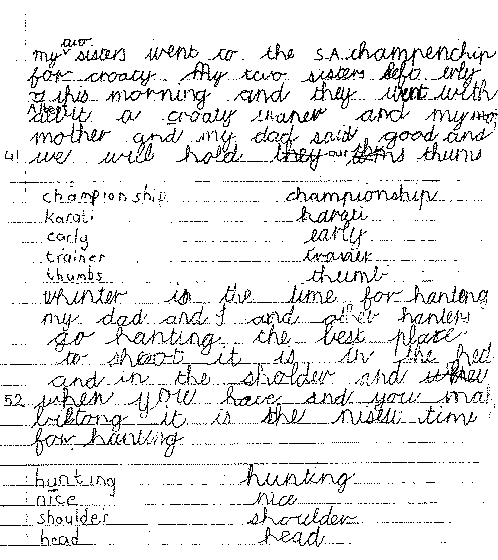 two
my sisters went to the S.A. champenchip
for croaty. My two sisters erly
this morning and they went with
a croaty and my
mother and my dad said good and
41 we will hold thums
championship championship
karati karati
early early
trainer
thumbs thumb
whinter is the time for hanteng
my dad and I and other hanters
go hanting. the best place
to shoot it is in the hed
and in the sholder and
52 when you have and you ma
biltong it is the time
for hanting
hunting hunting
nice nice
shoulder shoulder
head head